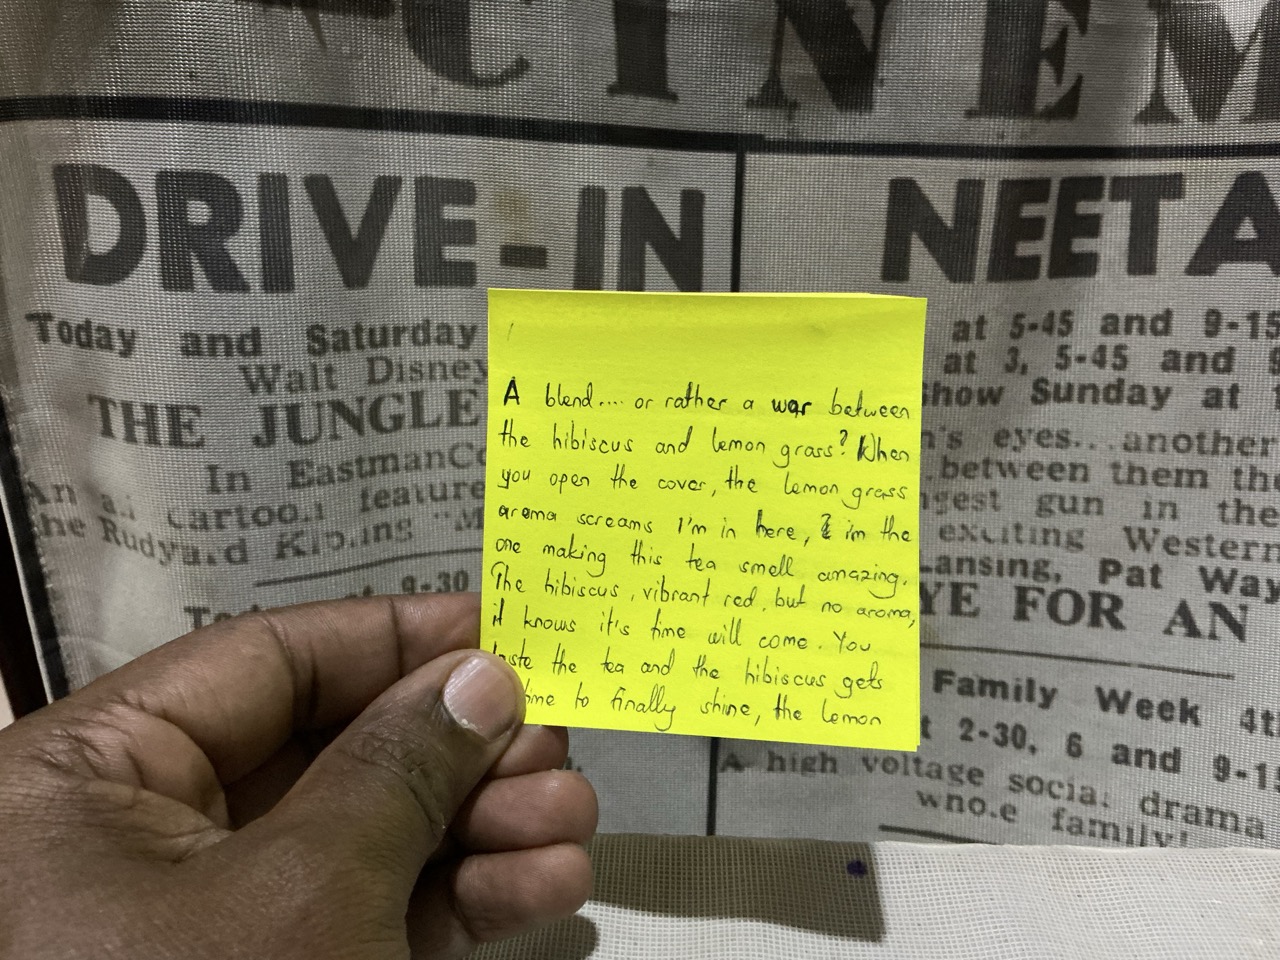 CINEM
DRIVE-IN
Today and Saturday
Walt Disney
THE JUNGLE
In EastmanCo
An a.i cartoo.i feature
he Rudya.d Kip.ing "M
at 9-30
NEETA
at 5-45 and 9-15
at 3, 5-45 and 9
Show Sunday at
n's eyes...another
between them the
gest gun in the
exciting Western
Lansing, Pat Way
YE FOR AN
Family Week 4t
t 2-30, 6 and 9-1
A high voltage socia. drama
who.e family!
A blend.... or rather a war between
the hibiscus and lemon grass? When
you open the cover, the lemon grass
aroma screams I'm in here, & im the
one making this tea smell amazing.
The hibiscus, vibrant red, but no aroma,
it knows it's time will come. You
taste the tea and the hibiscus gets
time to finally shine, the lemon